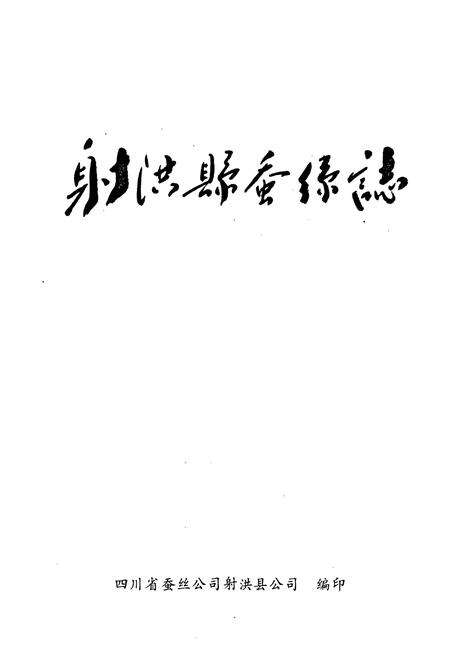 射洪縣蚕絲誌
四川省蚕丝公司射洪县公司 编印